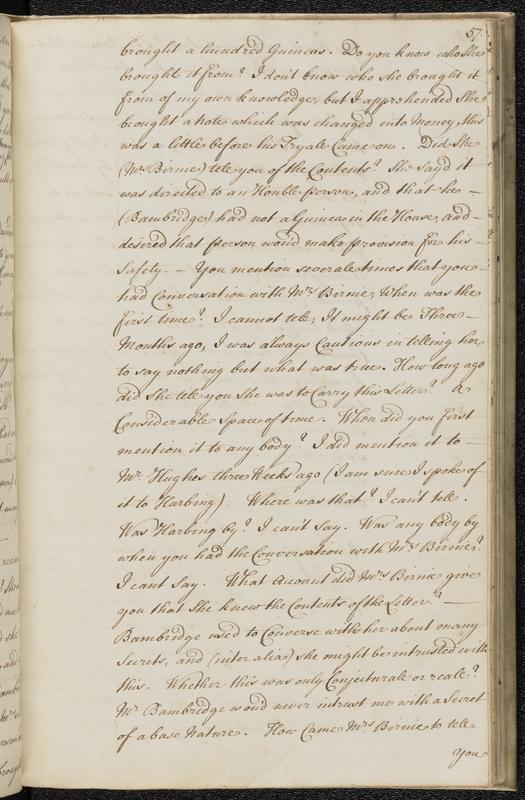 57.
brought a hundred Guineas. Do you know who She
brought it from? I don't know who she brought it
from of my own knowledge, but I apprehended She
brought a Note which was changed into Money, this
was a little before his Tryall Came on. Did She
(Mrs Birnie) tell you of the Contents? She Sayd it
was directed to an Honble person, and that he -
(Bambridge) had not a Guinea in the House, and -
desired that person woud make provision for his -
Safety. - You mention severale times that you -
had Conversation with Mrs Birnie, When was the
first time? I cannot tell, It might be Three -
Months ago, I was always Cautious in telling her
to say nothing but what was true. How long ago
did She tell you She was to Carry this Letter? A
Considerable Space of time. When did you first
mention it to any body? I did mention it to -
Mr Hughes three Weeks ago (I am sure I spoke of
it to Harbing) Where was that? I can't tell.
Was Harbing by? I can't Say. Was any body by
when you had the Conversation with Mrs Birnie?
I cant Say. What Account did Mrs Birnie give
you that She knew the Contents of the Letter? -
Bambridge used to Converse with her about many
Secrets, and (inter alia) she might be intrusted with
this. Whether this was only Conjecturale or reale?
Mr Bambridge woud never intrust me with a Secret
of a base Nature. How Came Mrs Birnie to tell
You